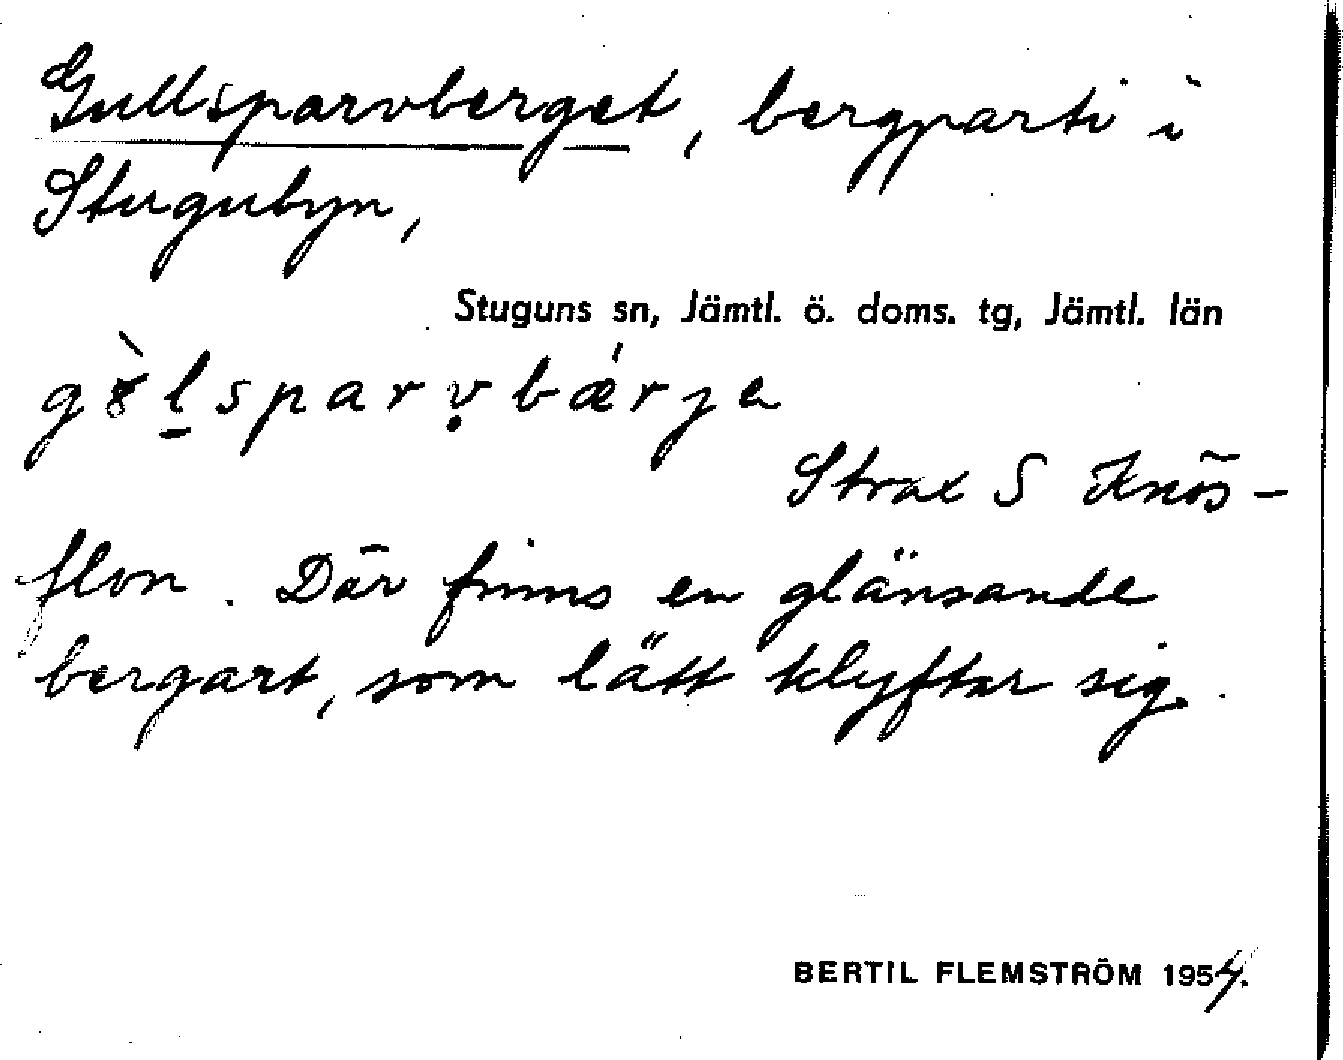 Gullsparvberget, bergparti i
Stugubyn,
Stuguns sn, Jämtl. ö. doms. tg, Jämtl. län
gɤ̀lsparṿbǽrje
Strax S Knös-
flon. Där finns en glänsande
bergart, som lätt klyftar sig.
BERTIL FLEMSTRÖM 1954.